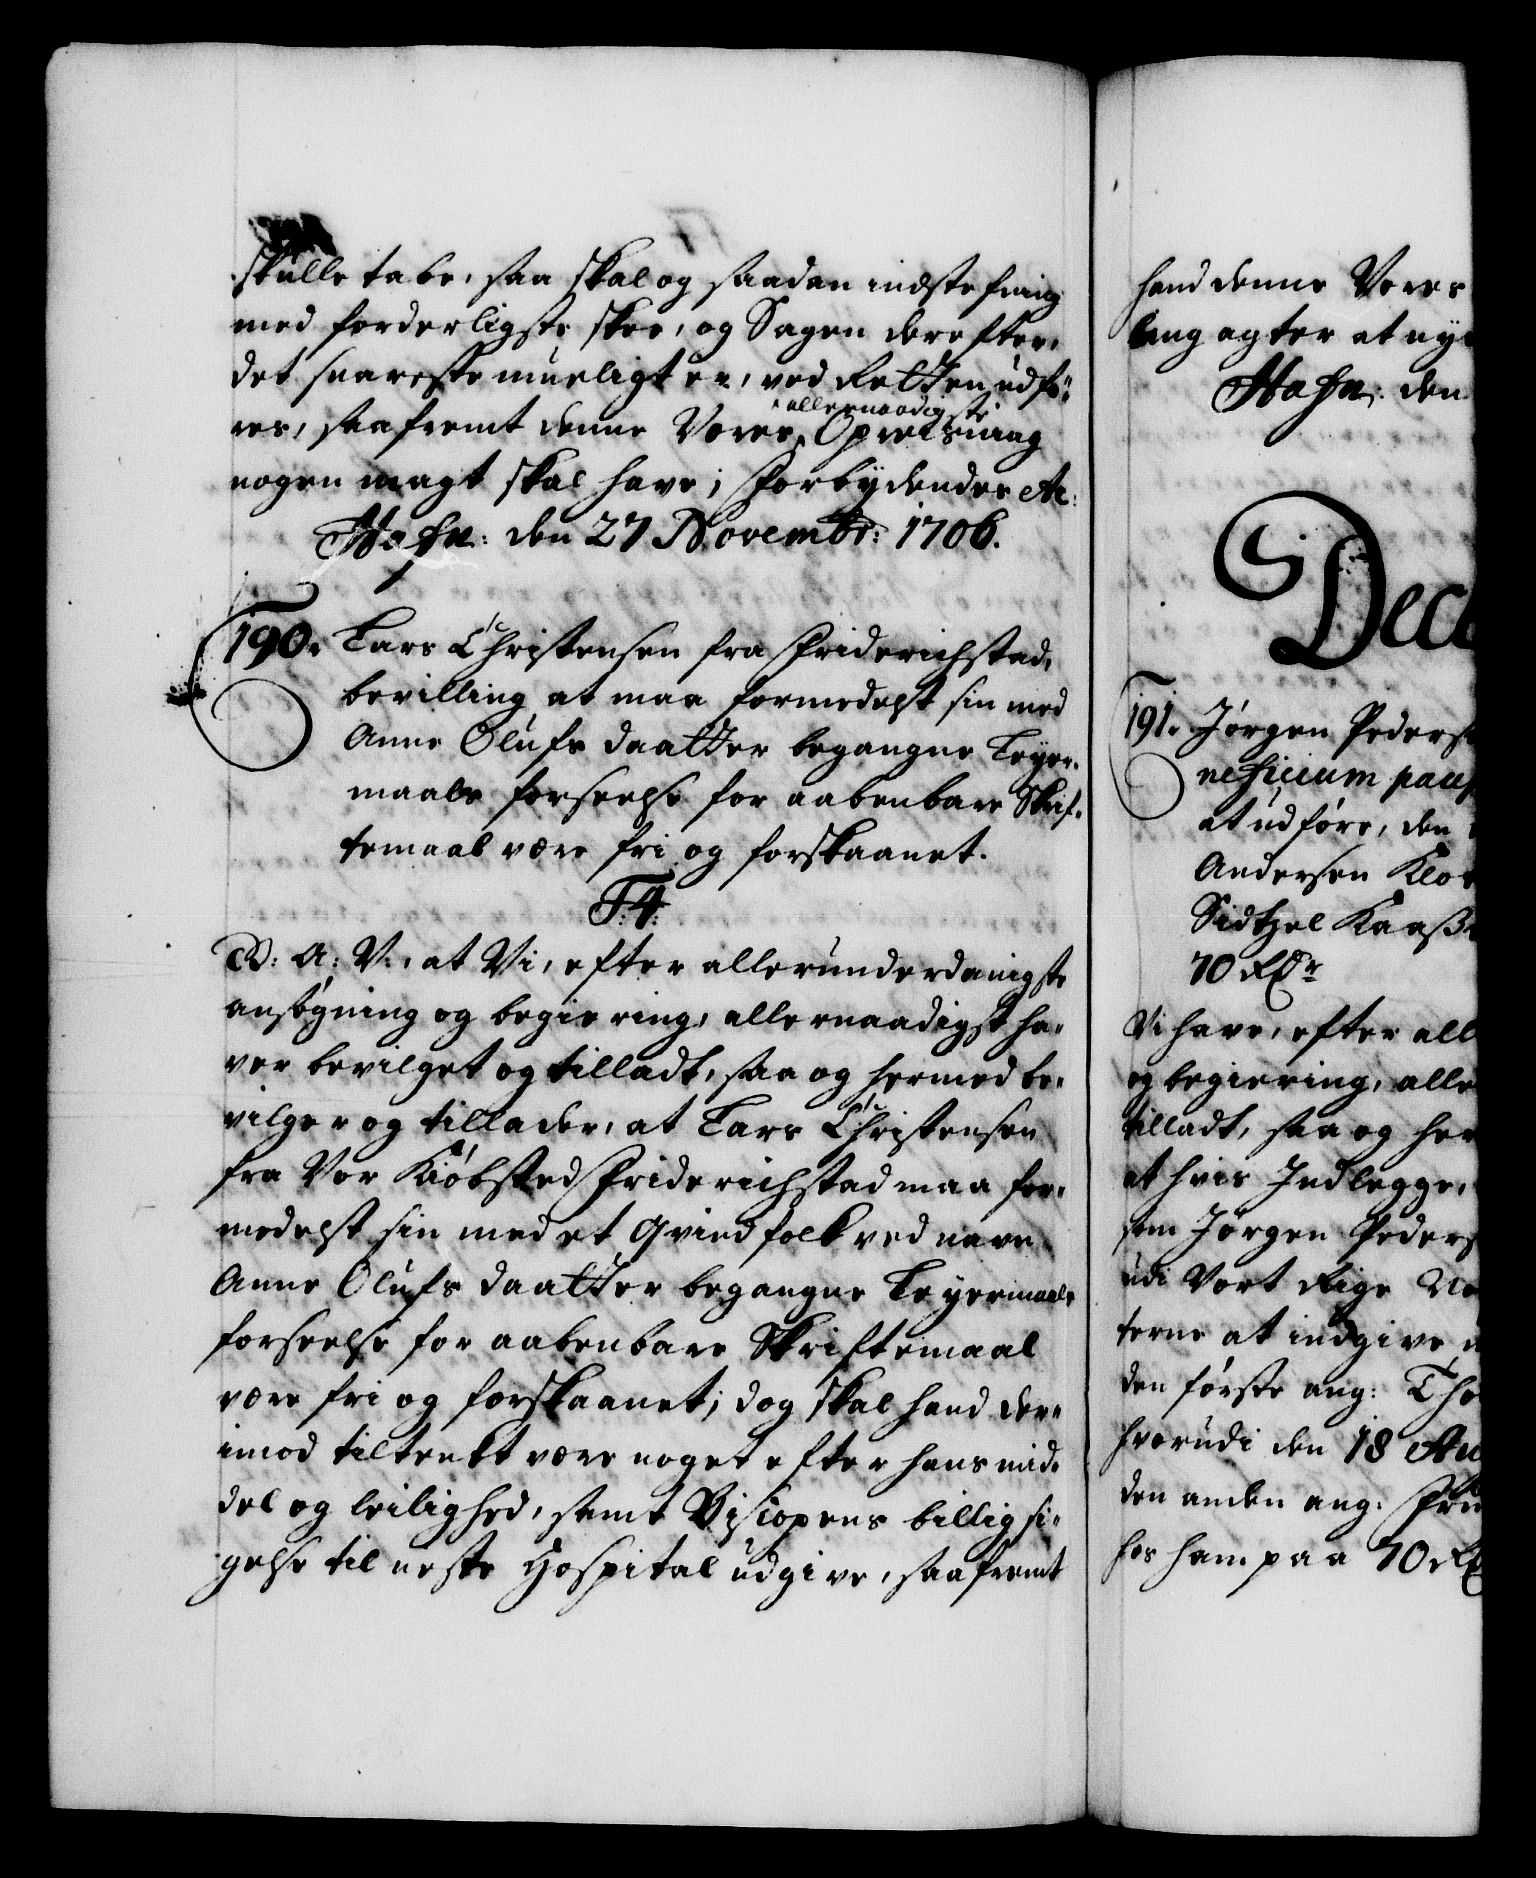 skulle tabe, saa skal og saadan indstefning
med forderligste skee, og Sagen derefter,
det snareste mueligt er, ved Retten udfø-
res, saafremt denne Vores allernaadigste Opreisning
nogen magt skal have; Forbydendes etc:
Hafn: den 27 Novembr: 1706.
190. Lars Christensen fra Friderichstad,
bevilling at maa formedelst sin med
Anne Olufs daatter begangne Leyer-
maals forseelse for aabenbare Skrif-
temaal være fri og forskaanet.
F: 4:
G: A: V:, at Vi, efter allerunderdanigste
ansøgning og begiering, allernaadigst ha-
ver bevilget og tilladt, saa og hermed be-
vilger og tillader, at Lars Christensen
fra Vor Kiøbsted Friderichstad maa for-
medelst sin med et Qvindfolk ved navn
Anne Olufs daatter begangne Leyermaals
forseelse for aabenbare Skriftemaal
være fri og forskaanet; dog skal hand der-
imod tiltenkt være noget efter hans mid-
del og leilighed, samt Biscopens billig si-
gelse til neste Hospital udgive, saafremt
hand denne Vores
ling agter at ny
Hafn: den
Dece
191. Jørgen Peders
neficium paup
at udføre, den
Andersen Klo
Sidtzel Kaas
70 Rdr
Vi have, efter all
og begiering, alle
tilladt, saa og her
at hvis Indlegge,
som Jørgen Peders
udi Vort Rige No
terne at indgive
den første ang: Tho
hvorudi den 18 Au
den anden ang: Fri
hos ham paa 70 R